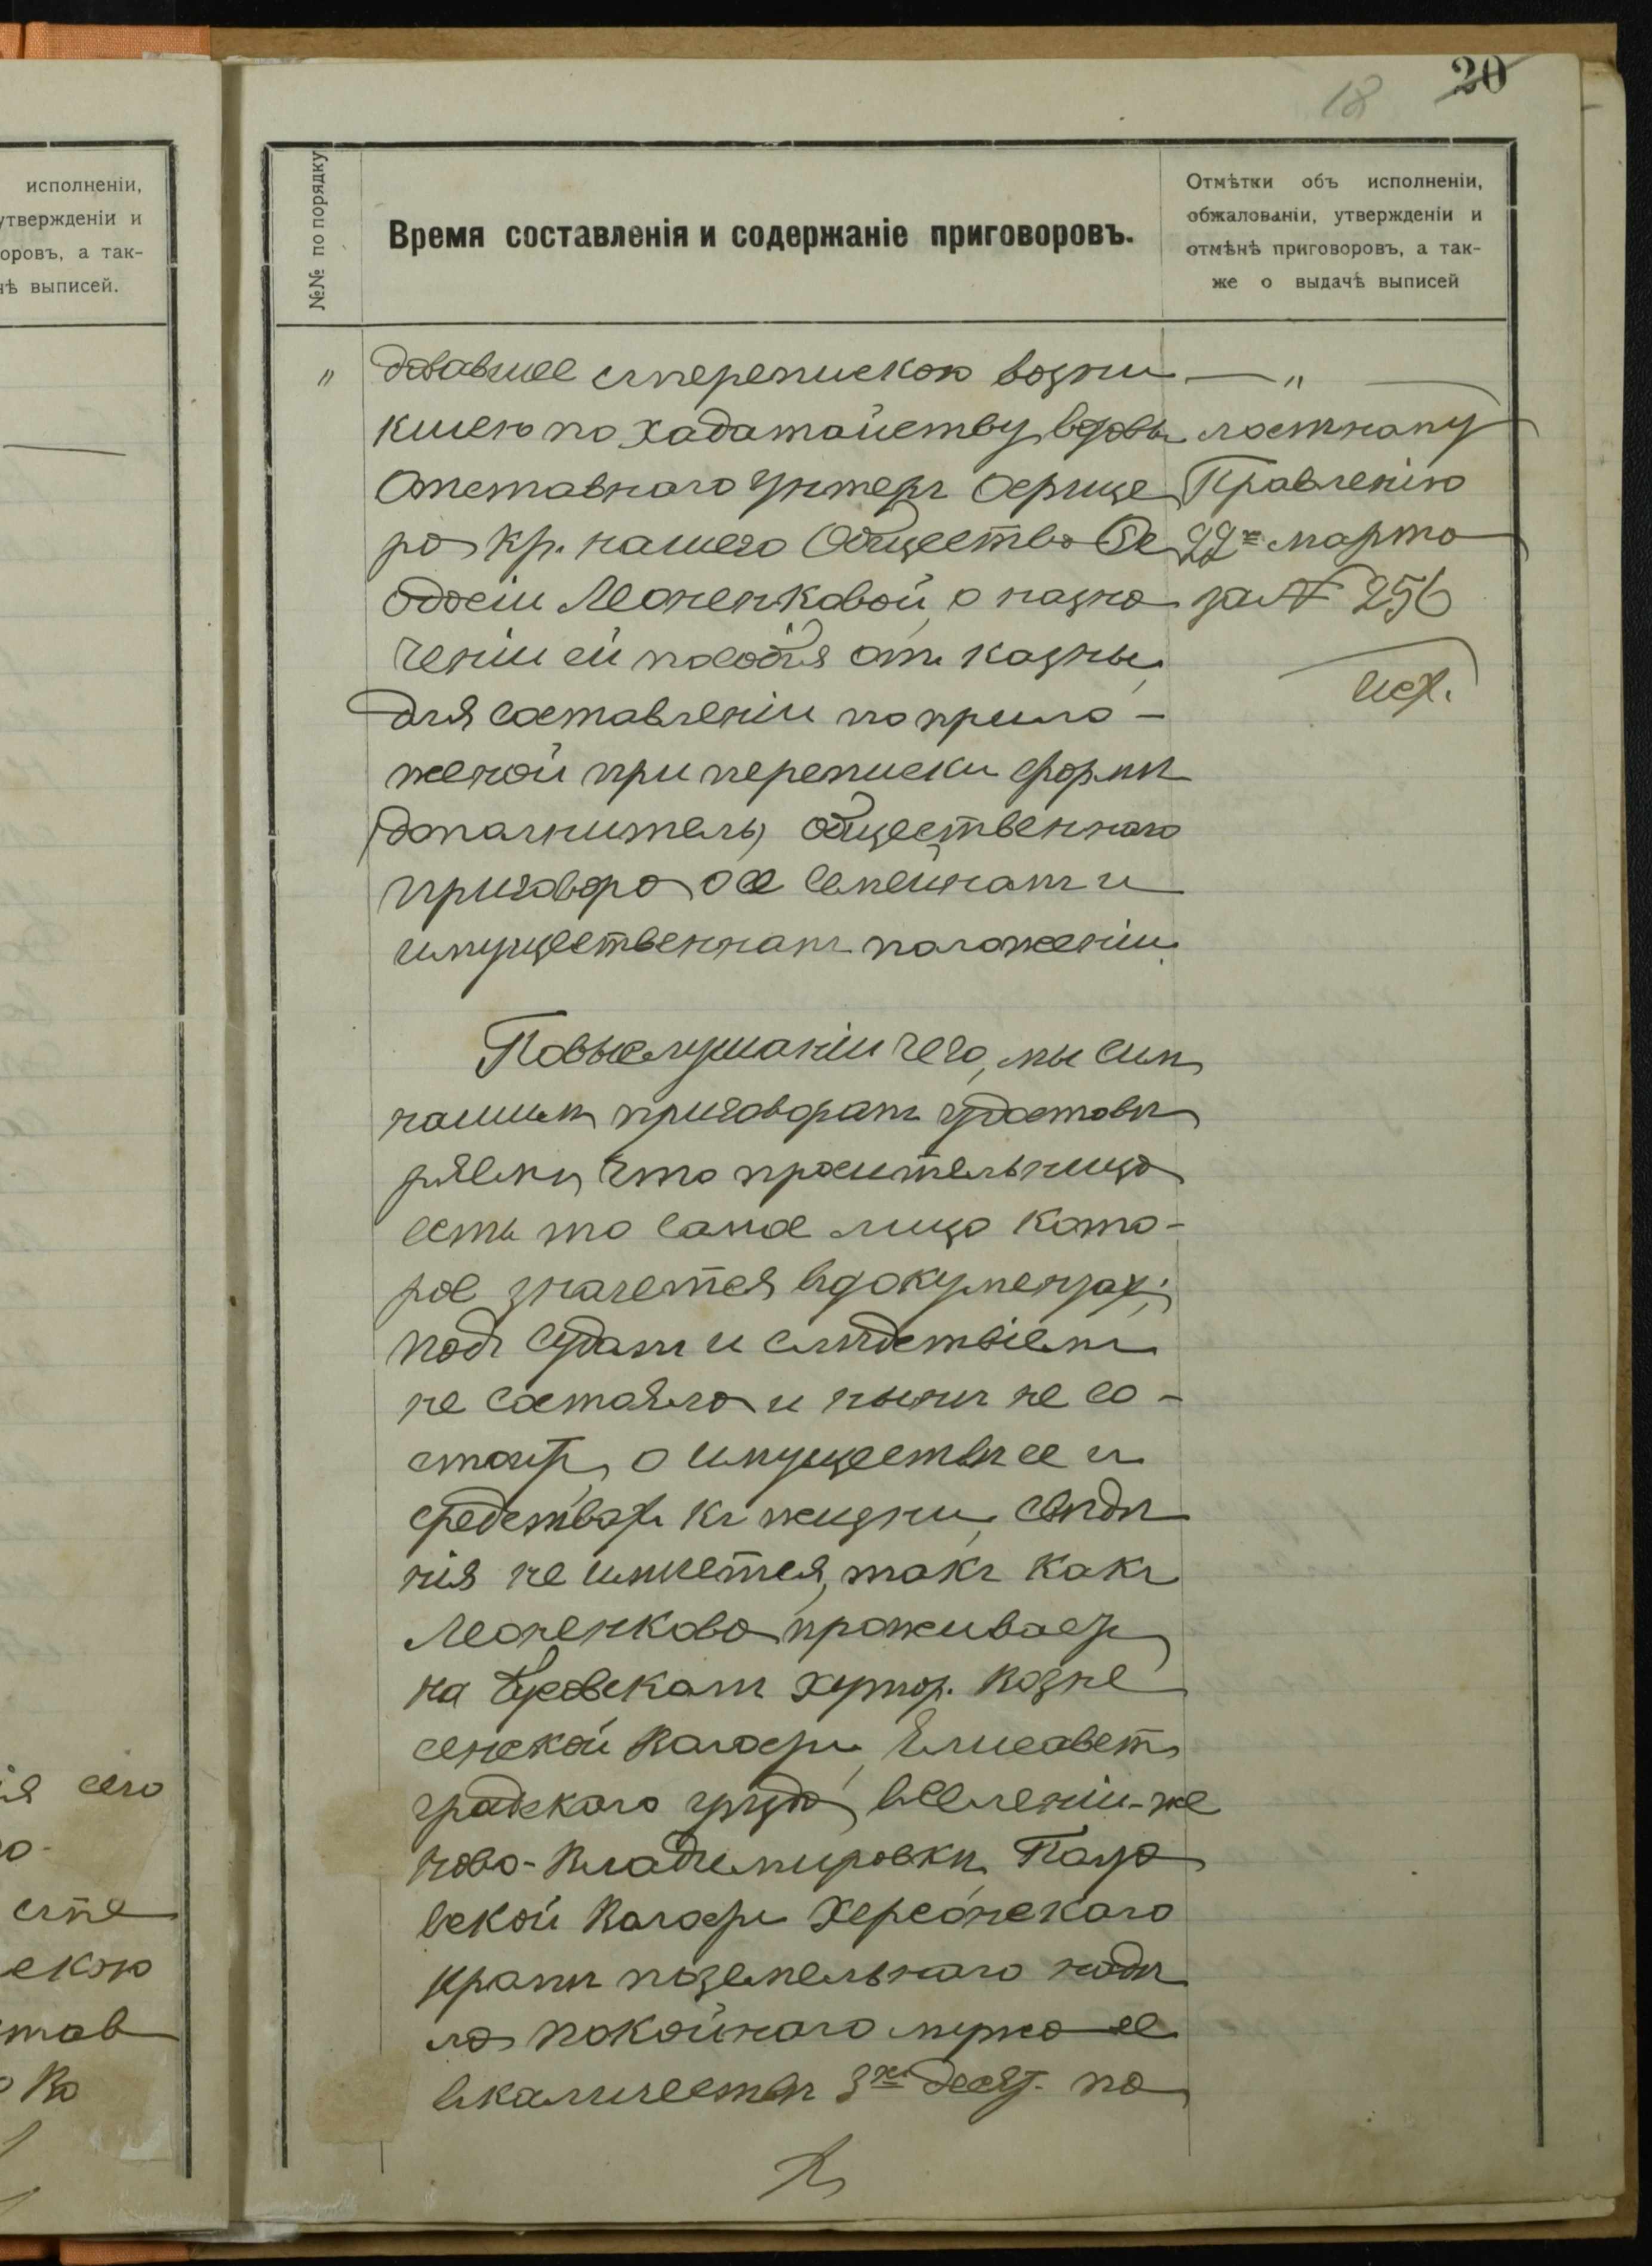 исполненіи,
утвержденіи и
оровъ, а так-
чѣ выписей.
ія сего
о-
ст̄е
скою
тав
Во
18 20
№№ по порядку
Время составленія и содержаніе приговоровъ.
Отмѣтки объ исполненіи,
обжалованіи, утвержденіи и
отмѣнѣ приговоровъ, а так-
же о выдачѣ выписей
"
довавшее съ перепискою возни
кшею по хадатайству вдовы
Отставного Унтеръ Офице
ра кр. нашего Общества Ѳе
одосіи Леоненковой, о назна
ченіи ей пособія отъ казны,
для составленіи по прило-
женой при переписки формѣ
дополнитель, общественного
приговора о ее семейномъ и
имущественномъ положеніи.
По выслушаніи чего, мы симъ
нашимъ приговоромъ удостовѣ
ряемъ, что просительница
есть то самое лицо кото-
рое значется въ документах;
подъ судомъ и слѣдствіемъ
не состояла и нынѣ не со-
стоит, о имуществѣ ее и
средствах къ жизни, свѣдѣ
нія не имѣется, такъ какъ
Леоненкова проживает
на хутор. Возне
сенской Волости, Елисавет
градского уѣзда, въ селеніи-же
Ново-Владимировкѣ,
вской Волости Херсонского
кромѣ поземельного надѣ
ла покойного мужа ее
в количествѣ 3х десят. по
— " —
лостному
Правленію
22го марта
за № 256
исх.